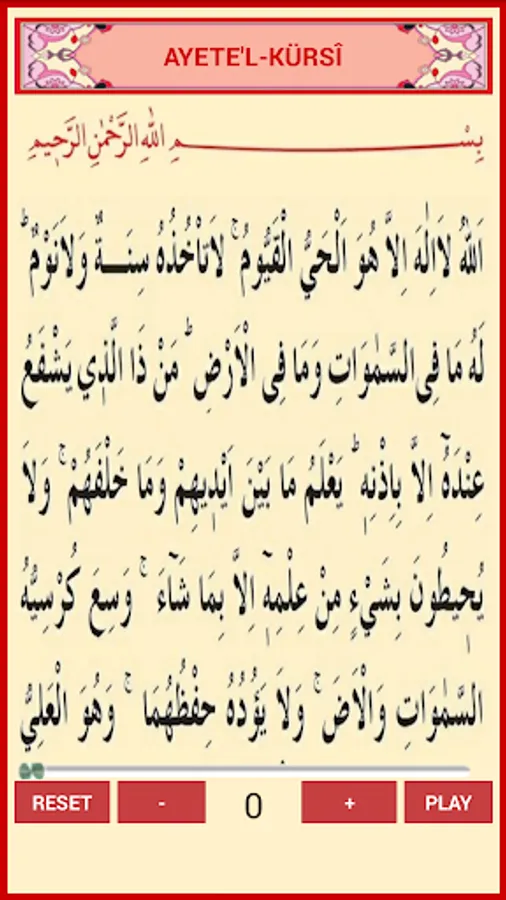 AYETE'L-KÜRSÎ
بِسْمِ اللهِ الرَّحْمٰنِ الرَّحِيمِ
اَللهُ لَااِلٰهَ اِلَّا هُوَ اَلْحَيُّ الْقَيُّومُ ۚ لَاتَاْخُذُهُ سِنَةٌ وَلَانَوْمٌ ؕ
لَهُ مَا فِى السَّمٰوَاتِ وَمَا فِى الْاَرْضِ ؕ مَنْ ذَا الَّذِي يَشْفَعُ
عِنْدَهُٓ اِلَّا بِاِذْنِهِ ؕ يَعْلَمُ مَا بَيْنَ اَيْدِيهِمْ وَمَا خَلْفَهُمْ ۚ وَلَا
يُحِيطُونَ بِشَيْءٍ مِنْ عِلْمِهِٓ اِلَّا بِمَا شَٓاءَ ۚ وَسِعَ كُرْسِيُّهُ
السَّمٰوَاتِ وَالْاَرْضَ ۚ وَلَا يَؤُدُهُ حِفْظُهُمَا ۚ وَهُوَ الْعَلِيُّ
RESET - 0 + PLAY